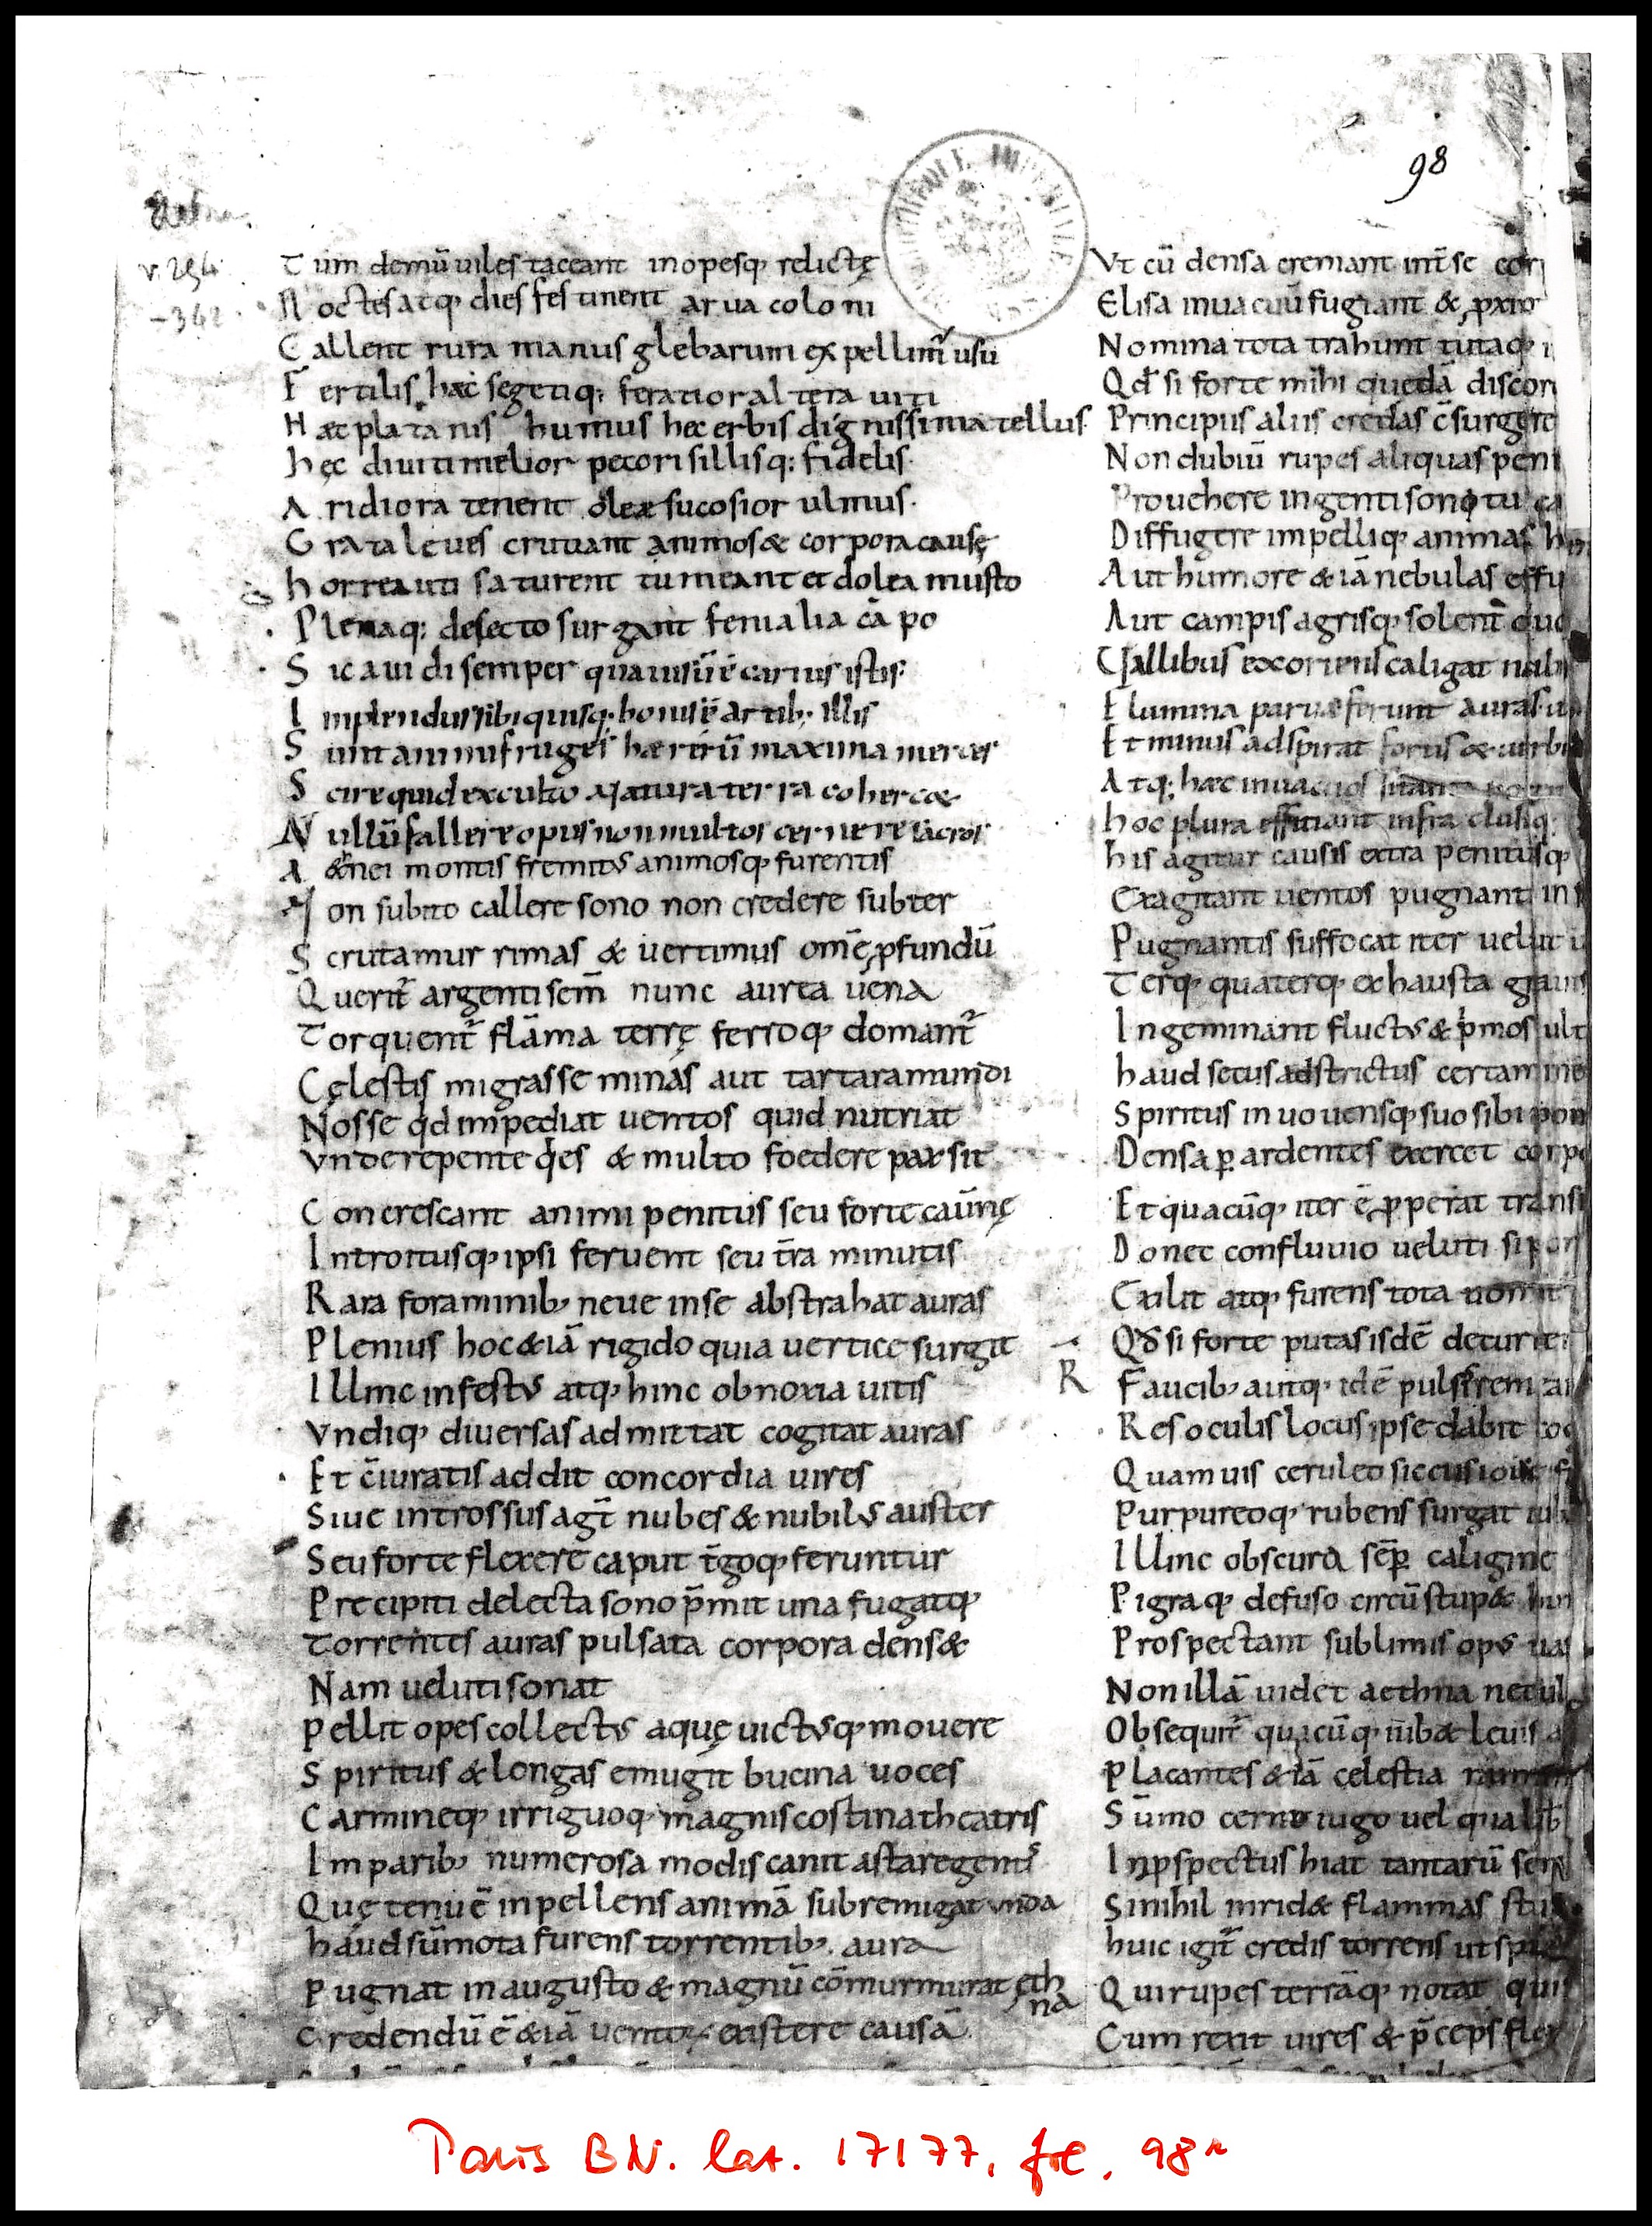 98
v. 254
-342
Tum demū uiles taceant inopesq; relictę
Noctes atq; dies festinent arua coloni
Callent rura manus glebarum expellimr̄ usu
Fertilis hæc segetiq; feratior altera uiti
Hæc platanis humus hec erbis dignissima tellus
hęc diuiti melior pecori sillisq; fidelis.
Aridiora tenent oleæ sucosior ulmus.
Grata leues cruciant animos & corpora causę
horrea uti saturent tumeant et dolea musto
Plenaq; desecto surgant fenialia cāpo
Sic auidi semper quauisū ē carius istis
Implendus sibi quisq; bonis ē artib; illis
Sunt animi fruges hæ rerū maxima merces
Scire quid exculto natura terra coherc&
Nullū fallere opus non multos cernere sacros
A&hnei montis fremitus animosq; furentis
Non subito callere sono non credere subter
Scrutamur rimas & uertimus omē ꝓfundū
Querit̄ argenti sem̄ nunc aurea uena
Torquent̄ flāma terrę ferroq; domant̄
Cęlestis migrasse minas aut tartara mundi
Nosse qd impediat uentos quid nutriat
Vnde repente q̇es & multo foedere pax sit
Concrescant animi penitus seu forte cauernę
Introitusq; ipsi feruent seu tr̄a minutis
Rara foraminib; neue in se abstrahat auras
Plenius hoc &iā rigido quia uertice surgit
Illinc infestus atq; hinc obnoxia uitis
Vndiq; diuersas admittat cogitat auras
Et c̄iuratis addit concordia uires
Siue introssus agt̄ nubes & nubilus auster
Seu forte flexere caput t̄goq; feruntur
Precipiti delecta sono p̄mit una fugatq;
Torrentes auras pulsata corpora dens&
Nam ueluti sonat
Pellit opes collectus aquę uictusq; mouere
Spiritus & longas emugit bucina uoces
Carmineq; irriguoq; magnis costina theatris
Imparib; numerosa modis canit asta regentis
Quę tenuē inpellens animā subremigat unda
haud sūmota furens torrentib; aura
Pugnat in augusto & magnū cōmurmurat ęth
na
Credendū ē &iā uentorx existere causā
Vt cū densa cremant int̄ se cor
Elisa in uacuū fugiant & ꝓxi
Nomina tota trahunt tutaq;
Qd si forte mihi quedā discor
Principiis aliis credas c̄surgere
Non dubiū rupes aliquas peni
Prouehere ingenti sonitu ca
Diffugere impelliq; animas h
Aut humore &iā nebulas effu
Aut campis agrisq; solent quo
Vallibus exoriens caligat nubi
Flumina paruæ ferunt auras
Et minus adspirat fortis & uerb
Atq; hæc in uacuos
hoc plura efficiant infra clusiq;
his agitur causis extra penitusq;
Exagitant uentos pugnant in
Pugnantis suffocat iter uelut
Terq; quaterq; exhausta graui
Ingeminant fluctus & p̄mos ult
haud secus adstrictus certamine
Spiritus inuoluensq; suo sibi pon
Densa p̱ ardentes exercet corp
Et quacūq; iter ē ꝓperat transi
Donec confluuio ueluti sipon
Exilit atq; furens tota
Qd si forte putas isdē decurre
R Faucib; autq; idē puls
Res oculis locus ipse dabit cog
Quamuis ceruleo siccus ioue f
Purpureoq; rubens surgat
Illinc obscura sēp̱ caligine
Pigraq; defuso circū stup&
Prospectant sublimis opus
Non illā uidet aethna nec ul
Obsequit̄ quacūq; iub& leuis
Placantes &iā celestia numin
Sūmo cerno iugo uel qua lib
Inꝓspectus hiat tantarū sem
Si nihil inrid& flammas stu
huic igit̄ credis torrens ut spi
Qui rupes terrāq; notat qui
Cum rexit uires & p̄ceps flex
Paris BN. lat. 17177, fol. 98r